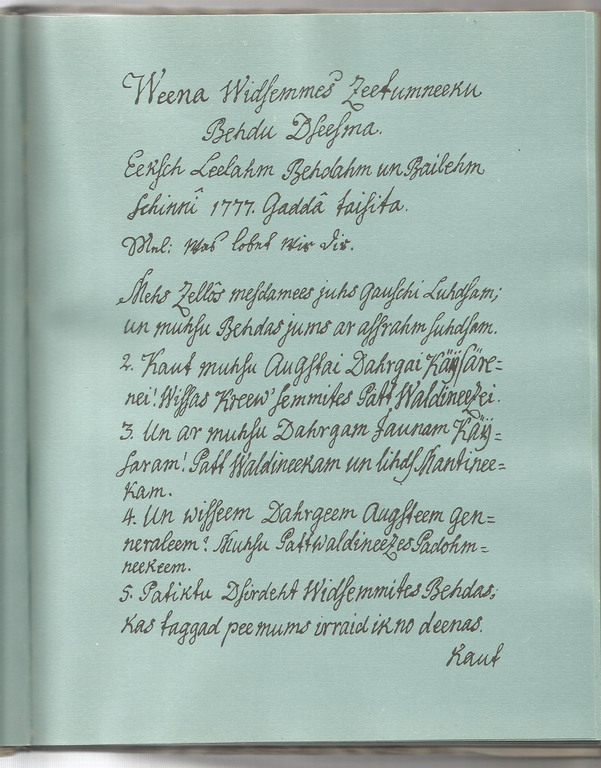 Weena Widſemmes Zeetumneeku
Behdu Dſeeſma.
Eekſch Leelahm Behdahm un Bailehm
ſchinnî 1777. Gaddâ taiſita.
Mel: Was lobet wir dir.
Mehs Zellôs meſdamees juhs Gauſchi Luhdſam;
un muhſu Behdas jums ar aſſrahm ſuhdſam.
2. Kaut muhſu Augſtai Dahrgai Käÿſäre=
nei! Wiſſas Kreew' ſemmites Patt Waldineezei.
3. Un ar muhſu Dahrgam Jaunam Käÿ=
ſaram! Patt Waldineekam un lihdſ Mantinee=
kam.
4. Un wiſſeem Dahrgeem Augſteem gen=
neraleem? Muhſu Pattwaldineezes Padohm=
neekeem.
5. Patiktu Dſirdeht Widſemmites Behdas,
kas taggad pee mums irraid ik no deenas.
Kaut